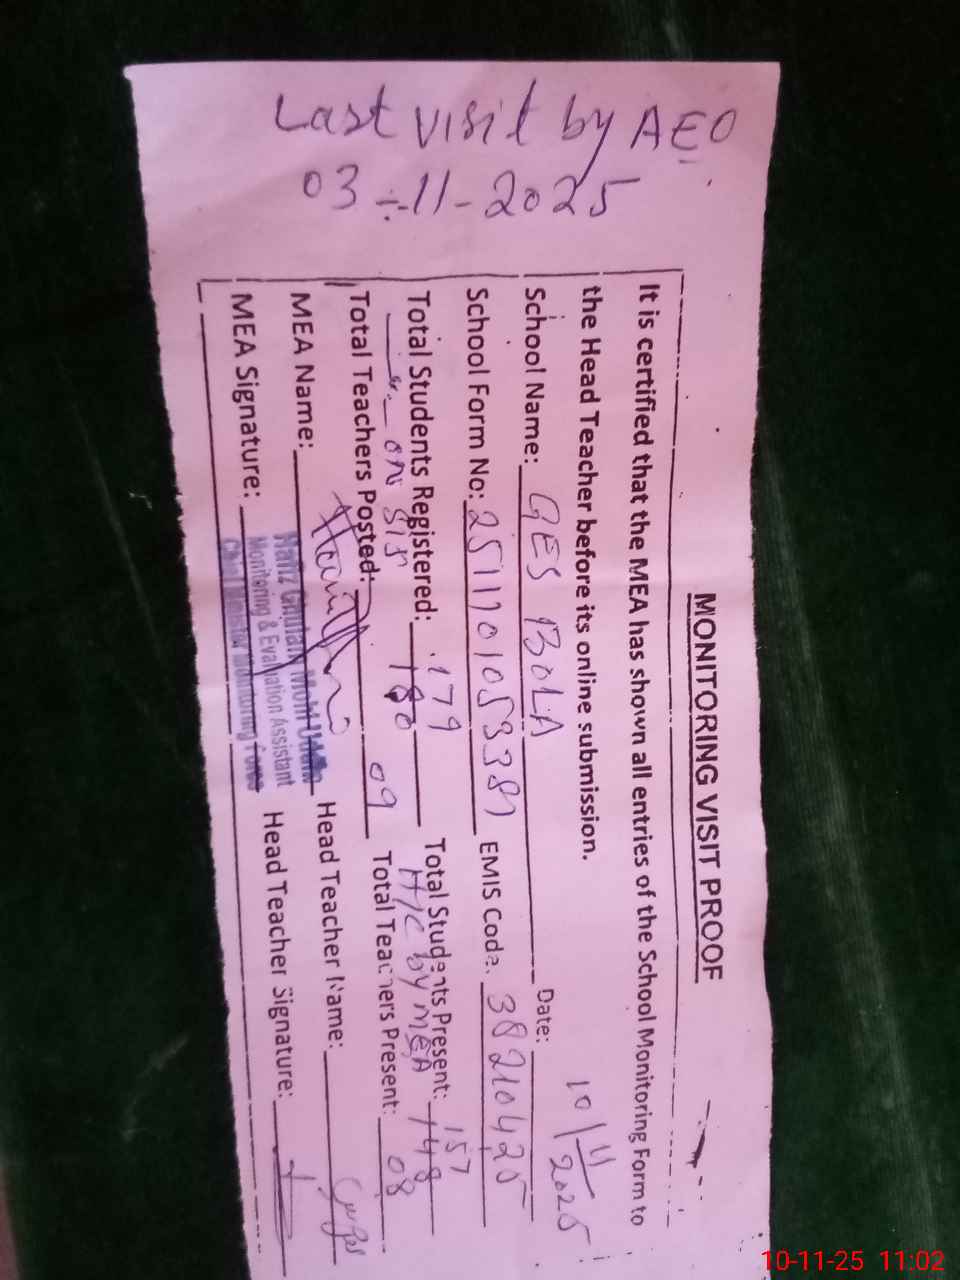 Last visit by AEO
03-11-2025
MONITORING VISIT PROOF
It is certified that the MEA has shown all entries of the School Monitoring Form to
the Head Teacher before its online submission.
School Name: GES BOLA Date: 10/11/2025
School Form No: EMIS Code. 38210425
Total Students Registered: 179 Total Students Present: 157
on SIS 180 H/C by MEA 148
Total Teachers Posted: 09 Total Teachers Present: 08
MEA Name: Hafiz Ghulam Head Teacher Name:
Monitoring & Evaluation Assistant
MEA Signature: Chief Minister Monitoring Force Head Teacher Signature:
10-11-25 11:02